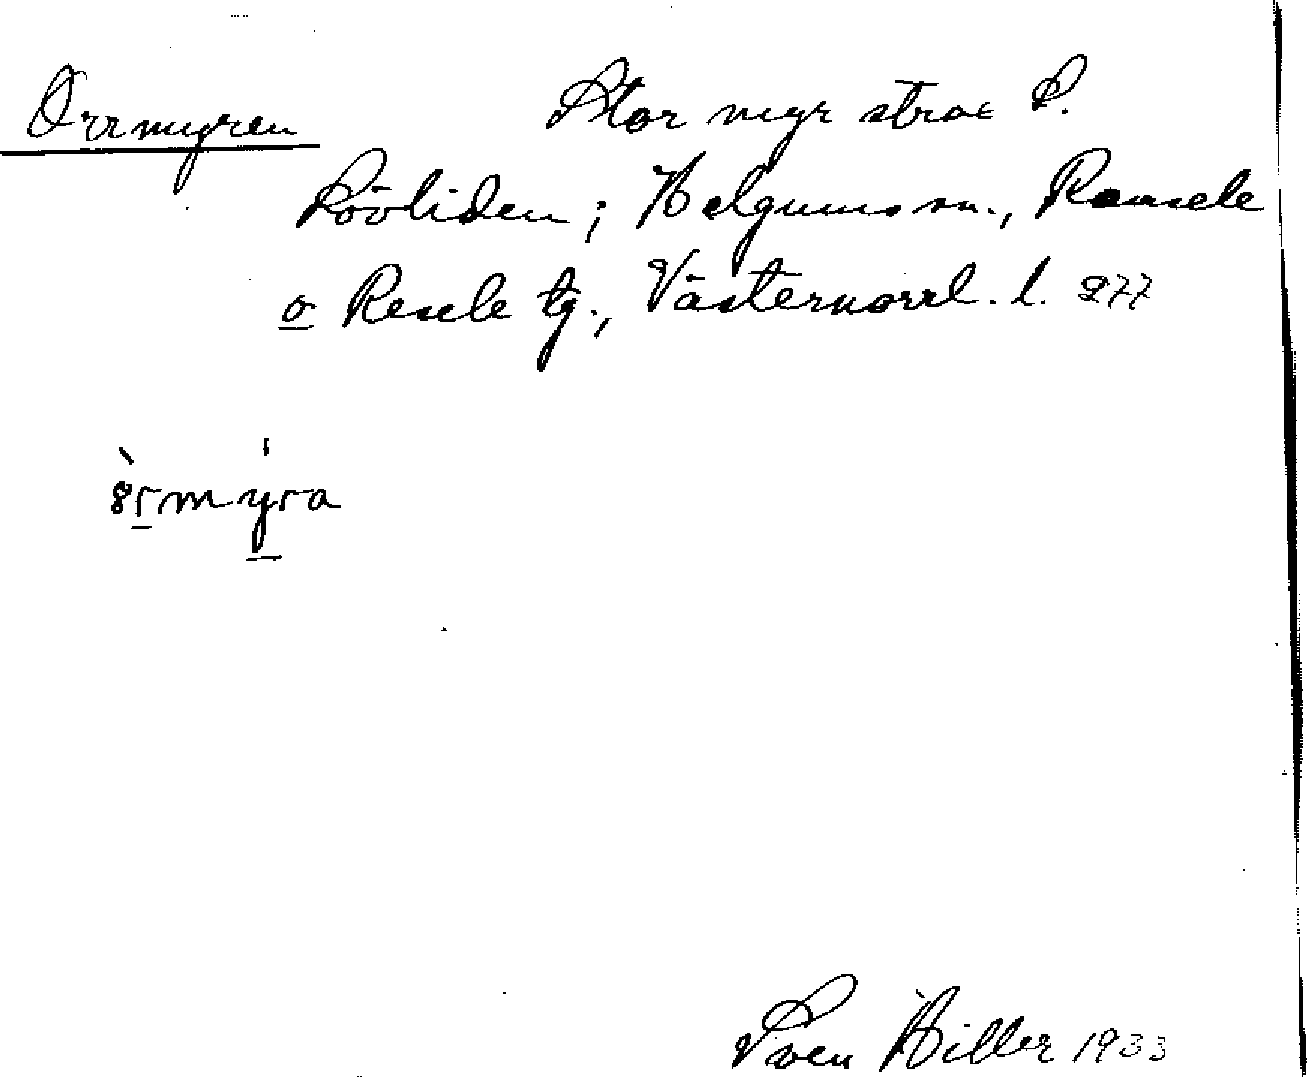 Orrmyren Stor myr strax S.
Lövliden; Helgums sn., Ramsele
o Resele tg., Västernorrl. l. 277
Sven Hiller 1933